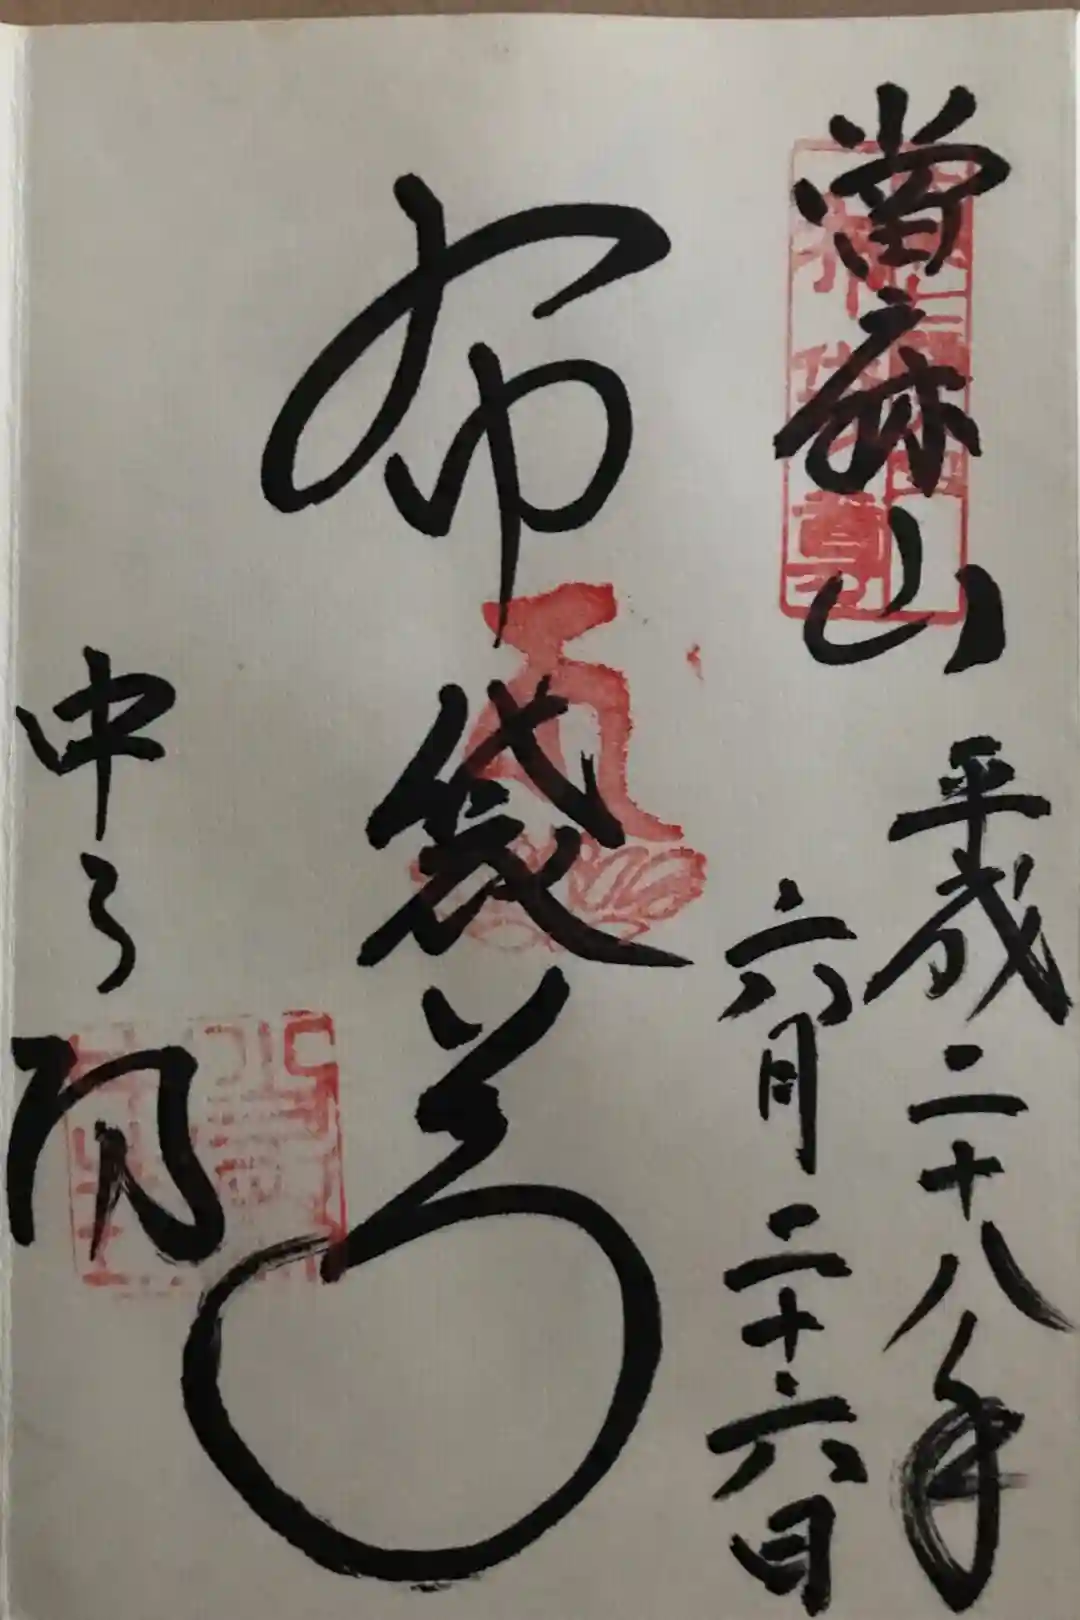 當麻山
平成二十八年
六月二十六日
布袋尊
中之坊